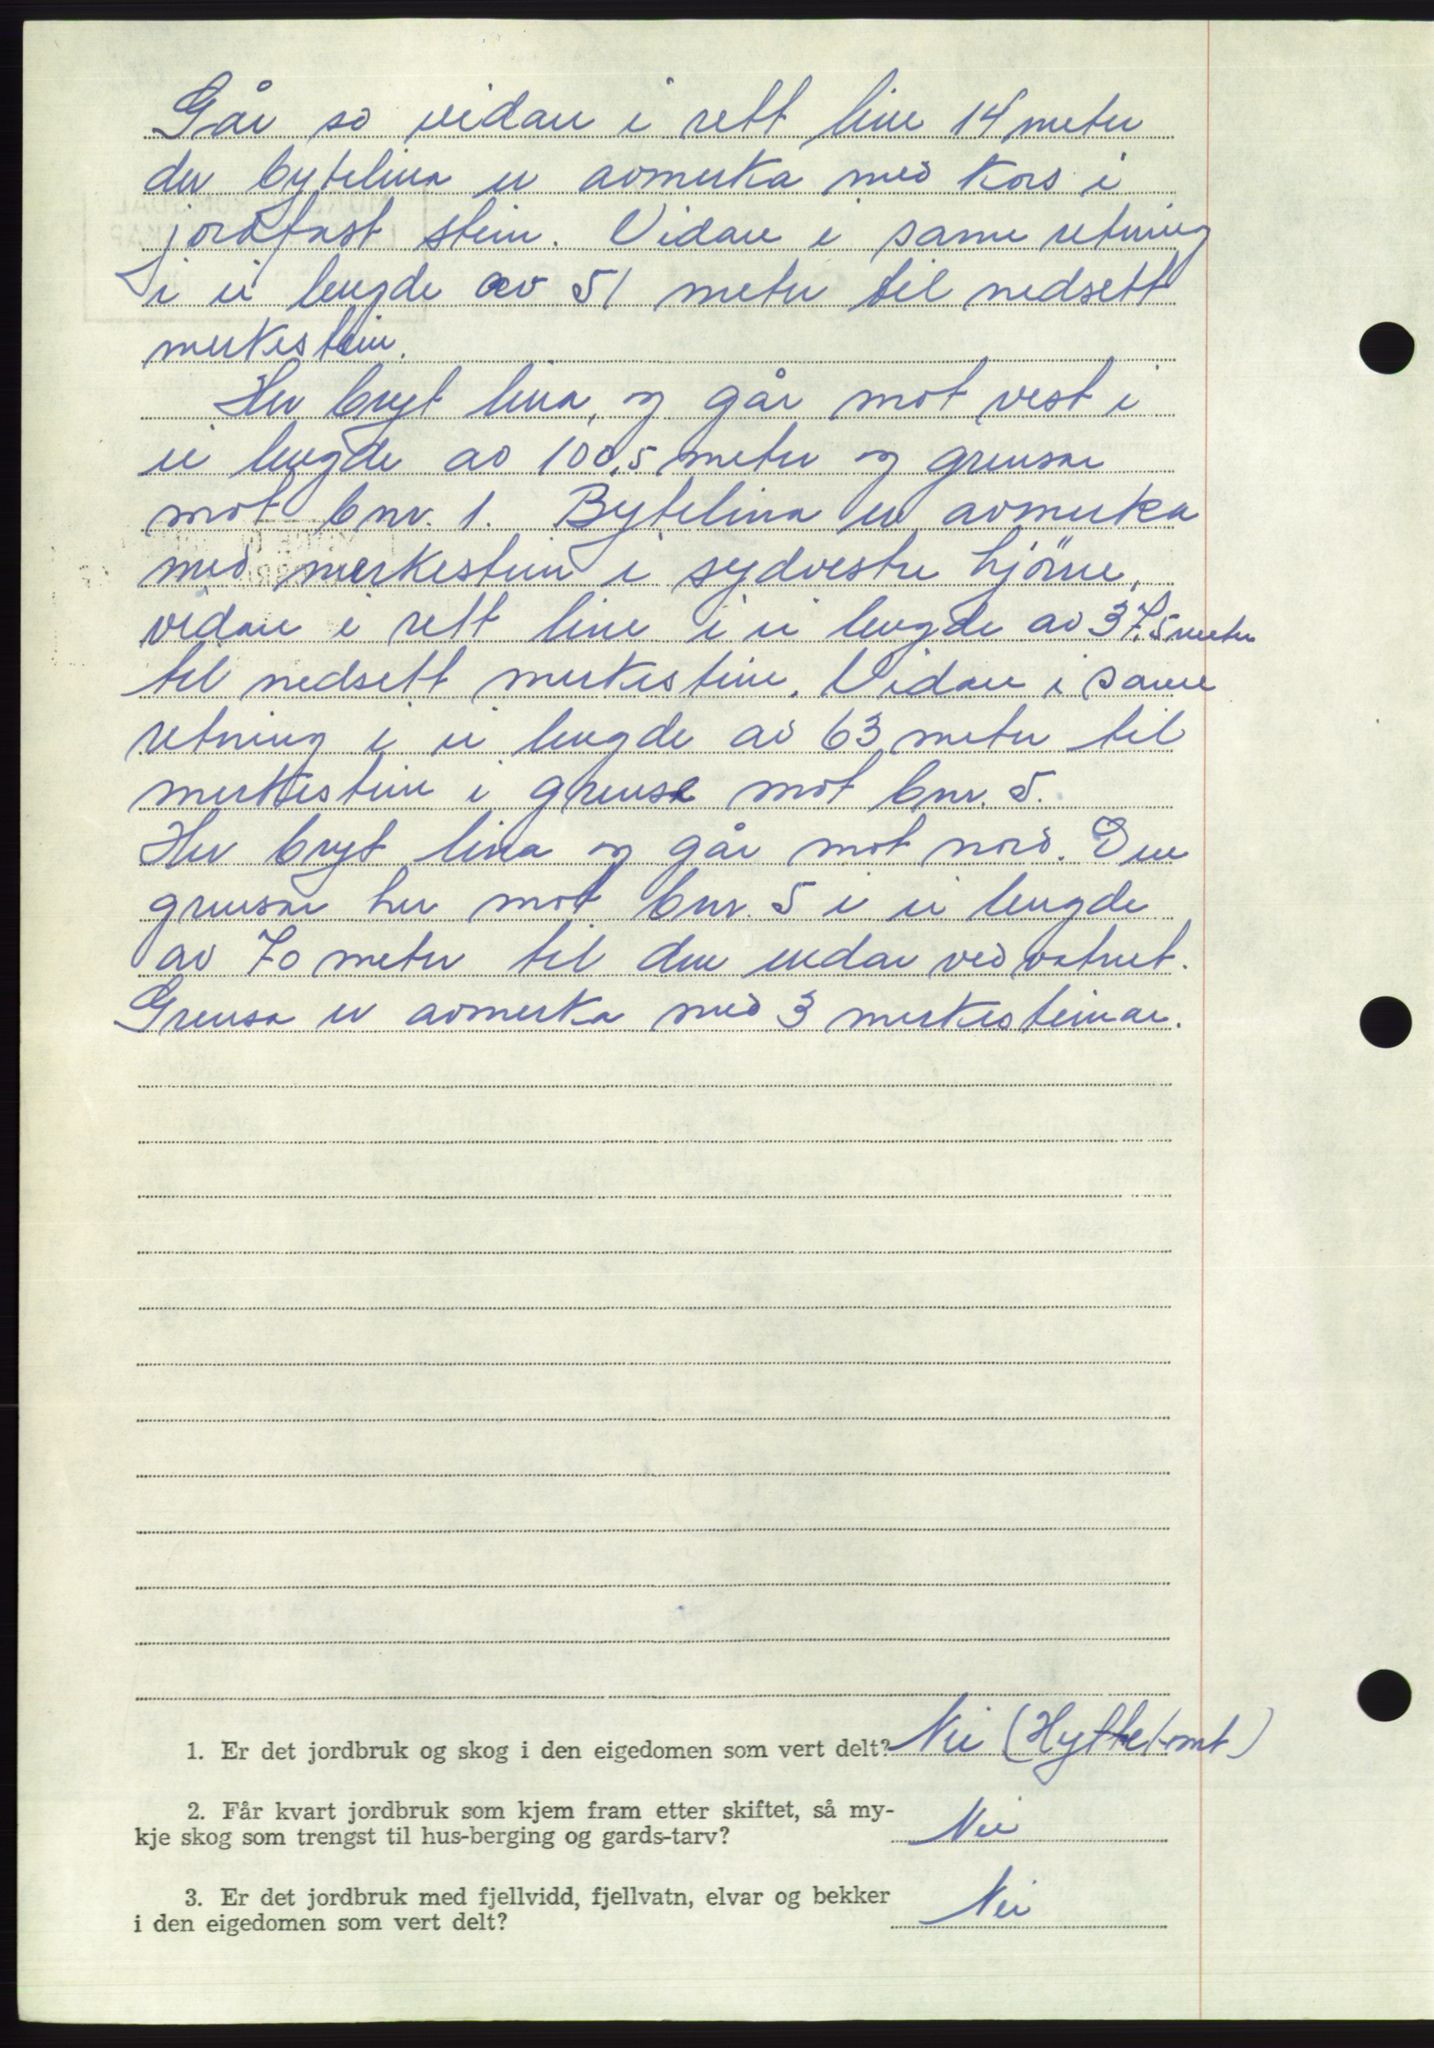 Går so vidare i rett line 14 meter
der bytelina er avmerka med kors i
jordfast stein. Vidare i same retning
i ei lengde av 51 meter til nedsett
merkestein.
Her bryt lina, og går mot vest i
ei lengde av 100,5 meter og grensar
mot bnr. 1. Bytelina er avmerka
med merkestein i sydvestre hjörne,
vidare i rett line i ei lengde av 37,5 meter
til nedsett merkestein. Vidare i same
retning i ei lengde av 63 meter til
merkestein i grense mot bnr. 5.
Her bryt lina og går mot nord. Den
grensar her mot bnr. 5 i ei lengde
av 70 meter til den endar ved vatnet.
Grensa er avmerka med 3 merkesteinar.
1. Er det jordbruk og skog i den eigedomen som vert delt? Nei (Hyttetomt)
2. Får kvart jordbruk som kjem fram etter skiftet, så my-
kje skog som trengst til hus-berging og gards-tarv? Nei
3. Er det jordbruk med fjellvidd, fjellvatn, elvar og bekker
i den eigedomen som vert delt? Nei